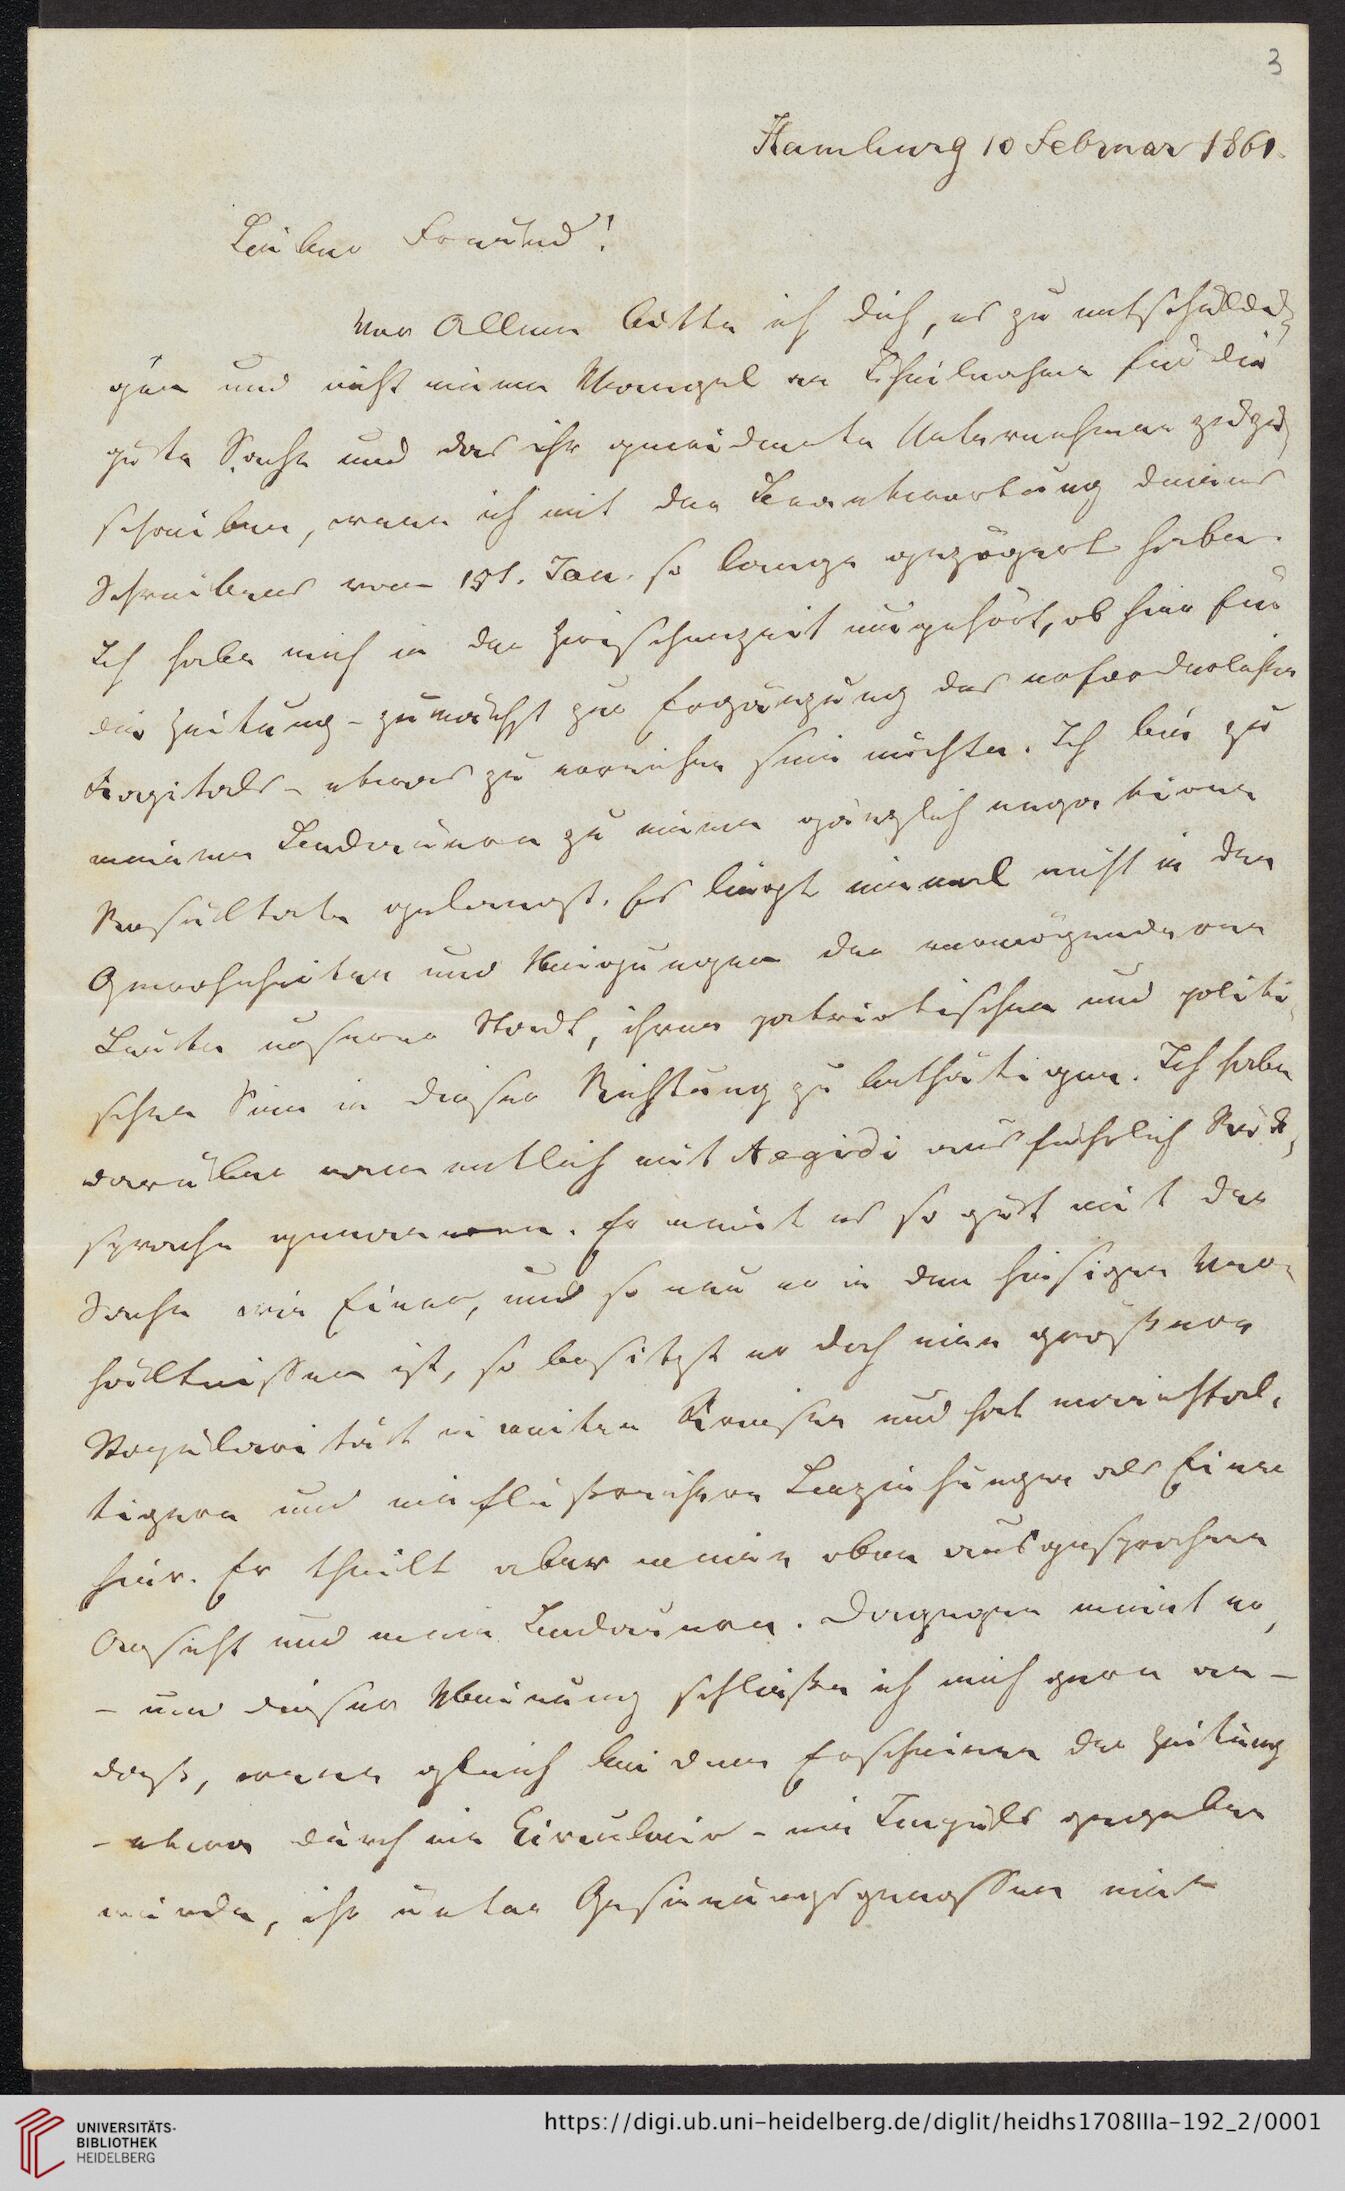 3
Hamburg 10 Februar 1861.
Lieber Freund!
Vor Allem bitte ich Dich, es zu entschuldi-
gen und nicht einem Mangel an Theilnahme für die
gute Sache und das ihr gewidmete Unternehmen zuzu-
schreiben, wenn ich mit der Beantwortung deines
Schreibens vom 1st. Jan. so lange gezögert habe.
Ich habe mich in der Zwischenzeit umgehört, ob hier für
die Zeitung - zunächst zur Ergänzung des erforderlichen
Kapitals - etwas zu erreichen sein möchte. Ich bin zu
meinem Bedauern zu einem gänzlich negativen
Resultate gelangt. Es liegt einmal nicht in den
Gewohnheiten und Neigungen der vermögenderen
Leute unserer Stadt, ihren patriotischen und politi-
schen Sinn in dieser Richtung zu bethätigen. Ich habe
darüber namentlich mit Aegidi ausführlich Rück-
sprache genommen. Er meint es so gut mit der
Sache wie Einer, und so neu er in den hiesigen Ver-
hältnissen ist, so besitzt er doch eine größere
Popularität in weiten Kreisen und hat mannichfal-
tigere und einflußreichere Beziehungen als Einer
hier. Er theilt aber meine oben ausgesprochene
Ansicht und mein Bedauern. Dagegen meint er,
- und dieser Meinung schließe ich mich gern an -
daß, wenn gleich bei dem Erscheinen der Zeitung
- etwa durch ein Circulair - ein Impuls gegeben
würde, ihr unter Gesinnungsgenossen mit
UNIVERSITÄTS-
BIBLIOTHEK
HEIDELBERG
https://digi.ub.uni-heidelberg.de/diglit/heidhs1708IIIa-192_2/0001